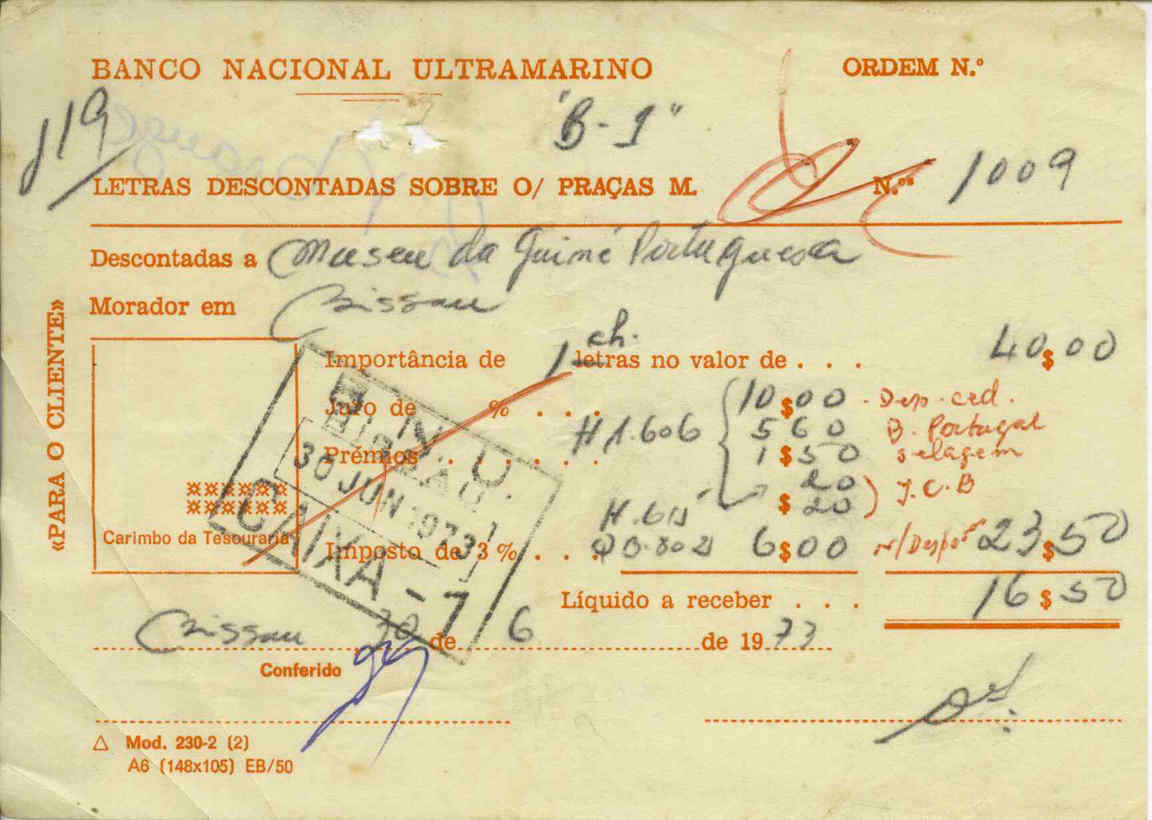 BANCO NACIONAL ULTRAMARINO ORDEM N.º
119 "B-1"
LETRAS DESCONTADAS SOBRE O/ PRAÇAS M. N.ºs 1009
Descontadas a Museu da Guiné Portuguesa
Morador em Bissau
«PARA O CLIENTE»
Importância de 1 ch. letras no valor de . . . 40$00
Juro de % . . . 10$00 - Dep. ced.
H 1.606 560 B. Portugal
Prémios . . . . . 1$50 selagem
20
$20 ) J.C.B
H.615
Carimbo da Tesouraria
Imposto de 3% . . 6$00 n/Despºs 23$50
B.N.U.
BISSAU
30 JUN 1973
CAIXA-7
Líquido a receber . . . 16$50
Bissau 30 de 6 de 1973
Conferido
Mod. 230-2 (2)
A6 (148x105) EB/50